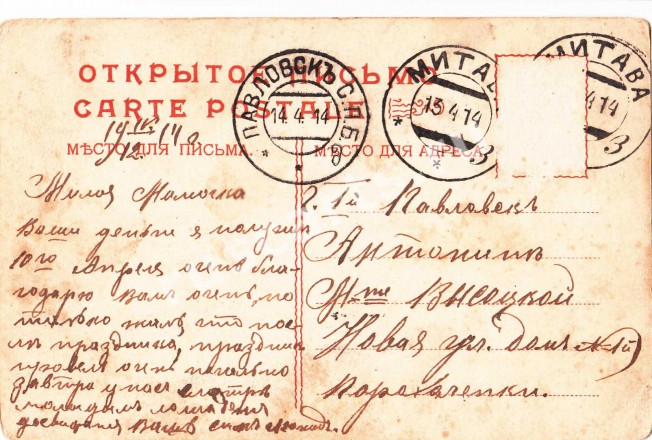 ОТКРЫТОЕ ПИСЬМО
CARTE POSTALE
МѢСТО ДЛЯ ПИСЬМА.
МѢСТО ДЛЯ АДРЕСА
ПАВЛОВСКЪ С.П.Б.
14.4.14
МИТАВА
13 4 14
З
МИТАВА
4 14
З
Милая Мамочка
Ваши деньги я получил
10го Апреля очень бла-
годарю Вамъ очень, но
только жаль что пос-
лѣ праздника, праздник
провелъ очень печально
завтра у насъ смотръ
молодымъ лошадямъ
досвидания Вашъ сынъ
г. Павловскъ
Антонинѣ
Mme Высоцкой
Новая ул. домъ №